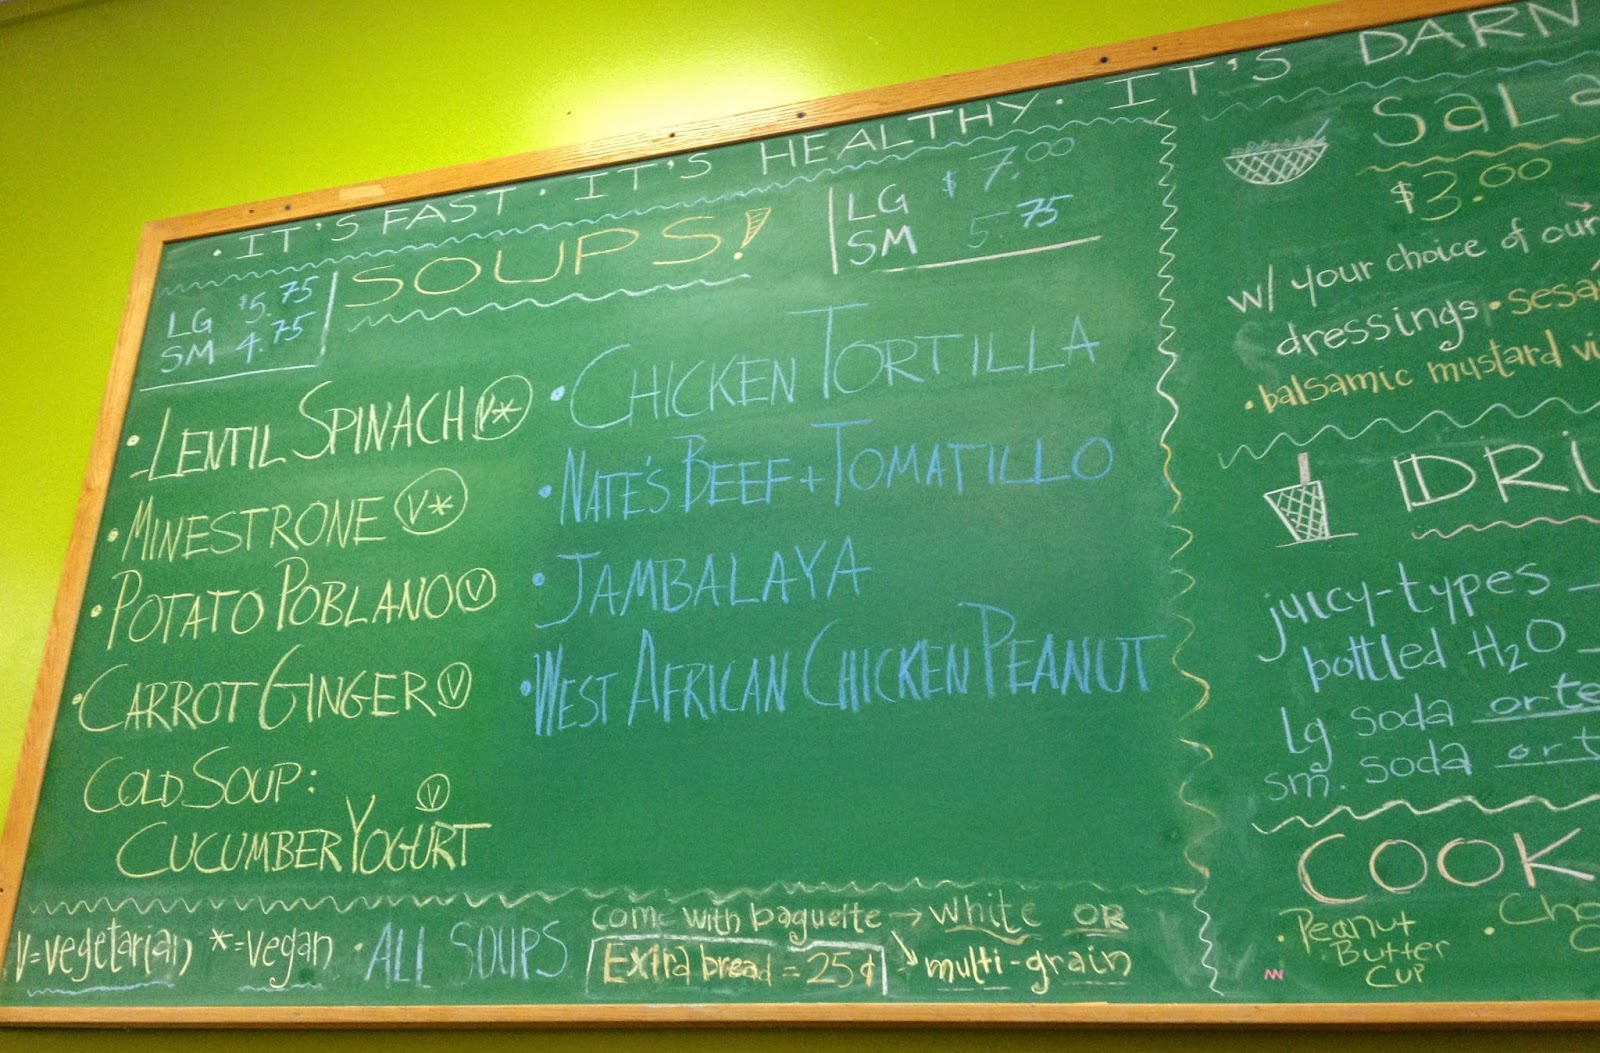 · IT'S FAST · IT'S HEALTHY · IT'S DARN
SOUPS!
LG $5.75
SM 4.75
· LENTIL SPINACH V*
· MINESTRONE V*
· POTATO POBLANO V
· CARROT GINGER V
COLD SOUP:
CUCUMBER YOGURT V
LG $7.00
SM 5.75
· CHICKEN TORTILLA
· NATE'S BEEF + TOMATILLO
· JAMBALAYA
· WEST AFRICAN CHICKEN PEANUT
V=vegetarian *=vegan · ALL SOUPS
come with baguette → white OR
multi-grain
Extra bread = 25¢
$3.00
w/ your choice of our
dressings ·
· balsamic mustard
juicy-types
bottled H2O
lg. soda or
sm. soda or
· Peanut
Butter
Cup